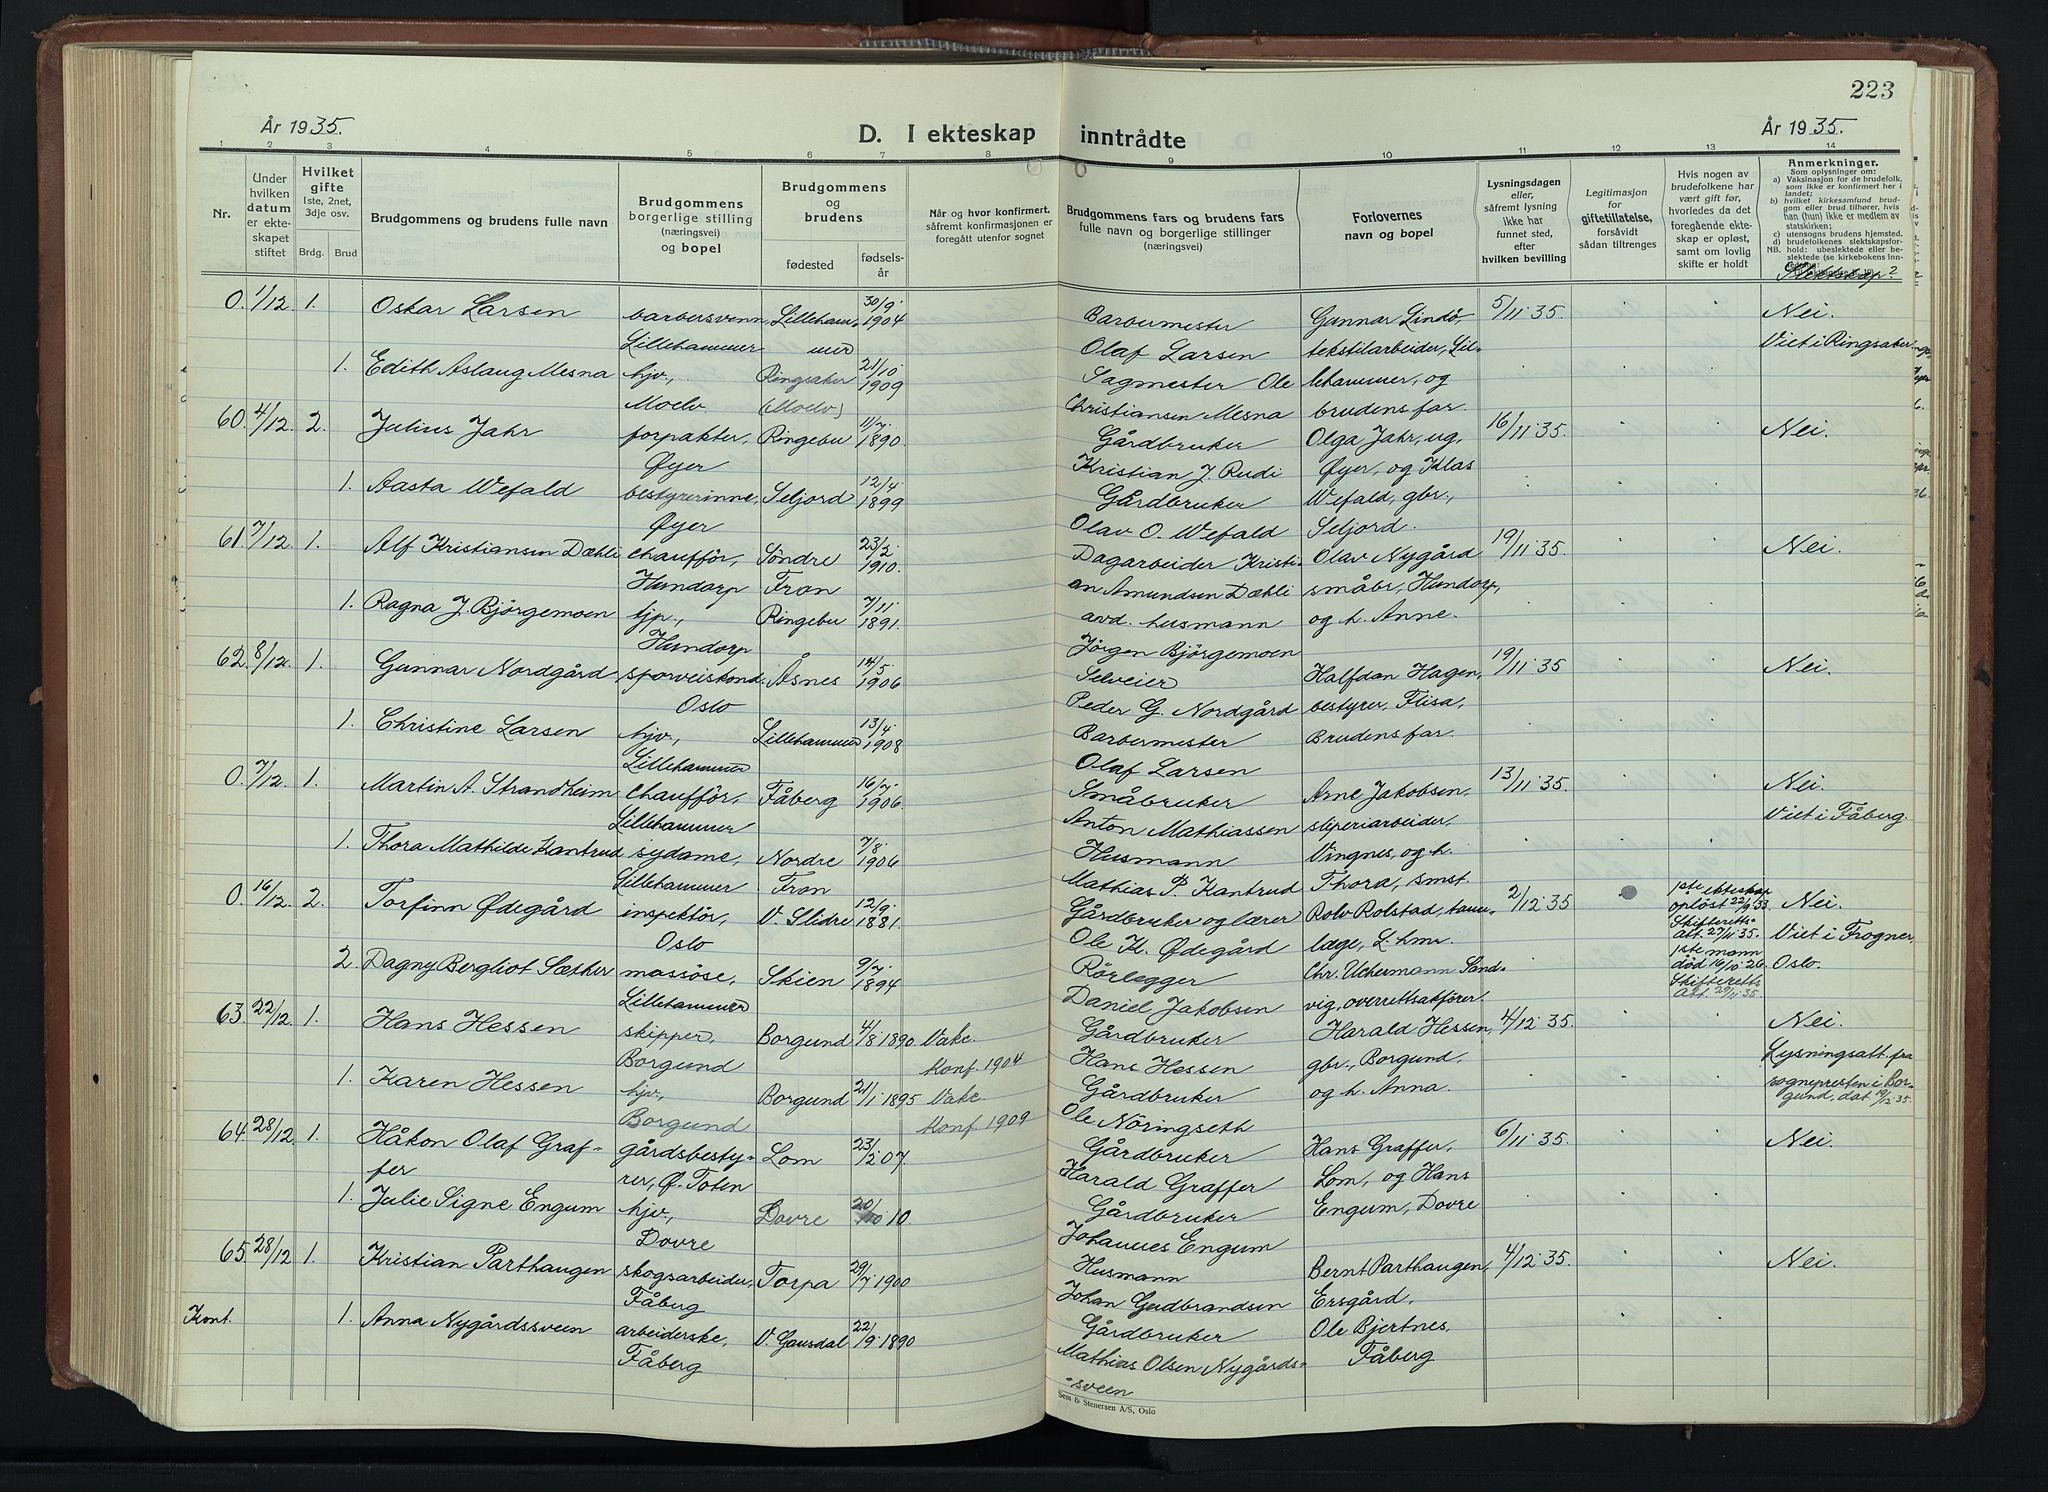 223
År 1935.
D. I ekteskap inntrådte
År 1935.
1 2 3 4 5 6 7 8 9 10 11 12 13 14
Nr.
Under hvilken datum er ekteskapet stiftet
Hvilket gifte 1ste, 2net, 3dje osv.
Brdg. Brud
Brudgommens og brudens fulle navn
Brudgommens borgerlige stilling (næringsvei) og bopel
Brudgommens og brudens
fødested
fødselsår
Når og hvor konfirmert, såfremt konfirmasjonen er foregått utenfor sognet
Brudgommens fars og brudens fars fulle navn og borgerlige stillinger (næringsvei)
Forlovernes navn og bopel
Lysningsdagen eller, såfremt lysning ikke har funnet sted, efter hvilken bevilling
Legitimasjon for giftetillatelse, forsåvidt sådan tiltrenges
Hvis nogen av brudefolkene har vært gift før, hvorledes da det foregående ekteskap er opløst, samt om lovlig skifte er holdt
Anmerkninger.
Som oplysninger om:
a) Vaksinasjon for de brudefolk, som ikke er konfirmert her i landet;
b) hvilket kirkesamfund brudgom eller brud tilhører, hvis han (hun) ikke er medlem av statskirken;
c) utensogns brudens hjemsted.
d) brudefolkenes slektskapsforhold: ubeslektede eller beslektede
Slektskap?
0. 1/12. 1. Oskar Larsen barbersvenn, Lilleham- 30/9. 1904 Barbermester Gunnar Lindö, 5/11.35. Nei.
Lillehammer mer Olaf Larsen tekstilarbeider, Lil- Viet i Ringsaker
1. Edith Aslaug Mesna hjv., Ringsaker 21/10 1909 Sagmester Ole lehammer, og
Moelv. (Moelv) Christiansen Mesna brudens far.
60. 4/12. 2. Julius Jahr forpakter, Ringebu 11/7. 1890. Gårdbruker Olga Jahr, ug, 16/11.35. Nei.
Øyer Kristian J. Rudi Øyer, og Klas
1. Aasta Wefald bestyrerinne, Seljord 12/4 1899 Gårdbruker Wefald, gbr.,
Øyer Olav O. Wefald Seljord.
61. 7/12. 1. Alf Kristiansen Dæhli chaufför, Söndre 23/2. 1910. Dagarbeider Kristi- Olav Nygård 19/11.35. Nei.
Hundorp Fron an Amundsen Dæhli småbr, Hundorp,
1. Ragna J. Björgemoen tjp., Ringebu 7/11. 1891. avd. husmann og h. Anne.
Hundorp Jörgen Björgemoen
62. 8/12. 1. Gunnar Nordgård sporveiskond. Åsnes 14/5. 1906 Selveier Halfdan Hagen, 19/11.35 Nei.
Oslo Peder G. Nordgård bestyrer, Flisa,
1. Christine Larsen hjv., Lillehammer 13/4 1908 Barbermester Brudens far.
Lillehammer Olaf Larsen
0. 7/12. 1. Martin A. Strandheim chaufför, Fåberg 16/7. 1906. Småbruker Arne Jakobsen, 13/11.35. Nei.
Lillehammer Anton Mathiassen sliperiarbeider, Viet i Fåberg.
1. Thora Mathilde Kantrud sydame, Nordre 7/8. 1906 Husmann Vingnes, og h.
Lillehammer Fron Mathias P. Kantrud Thora, smst.
0. 16/12. 2. Torfinn Ødegård inspektör, V. Slidre 12/9. 1881. Gårdbruker og lærer Rolv Rolstad, tann- 2/12.35 1ste ekteskap oplöst 22/9.33. Nei.
Oslo Ole K. Ødegård læge, L.hmr. Skifteretts- att. 27/11.35. Viet i Frogner,
2. Dagny Bergliot Sæther massöse, Skien 9/7. 1894 Rörlegger Chr. Uchermann Sand- 1ste mann död 16/10.26. Oslo.
Lillehammer Daniel Jakobsen vig, overrettssakförer. Skifteretts att. 29/11.35
63. 22/12. 1. Hans Hessen skipper, Borgund 4/8 1890 Vakc. Gårdbruker Harald Hessen, 4/12.35. Nei.
Borgund Konf. 1904 Hans Hessen gbr., Borgund, Lysningsatt. fra
1. Karen Hessen hjv., Borgund 21/1 1895 Vakc. Gårdbruker og h. Anna. sognepresten i Bor-
Borgund Konf. 1909 Ole Nöringseth gund, dat. 19/12.35
64. 28/12. 1. Håkon Olaf Graf- gårdsbesty- Lom 23/2 07. Gårdbruker Hans Graffer, 6/11.35. Nei.
fer rer, Ø. Toten Harald Graffer Lom, og Hans
1. Julie Signe Engum hjv., Dovre 20/10 10. Gårdbruker Engum, Dovre
Dovre Johannes Engum
65. 28/12 1. Kristian Parthaugen skogsarbeider, Torpa 29/7 1900 Husmann Bernt Parthaugen, 4/12.35. Nei.
Fåberg Johan Gudbrandsen Ersgård,
Kont. 1. Anna Nygårdssveen arbeiderske, V. Gausdal 22/9. 1890 Gårdbruker Ole Bjertnes,
Fåberg Mathias Olsen Nygårds- Fåberg
-sveen
Sem & Stenersen A/S, Oslo